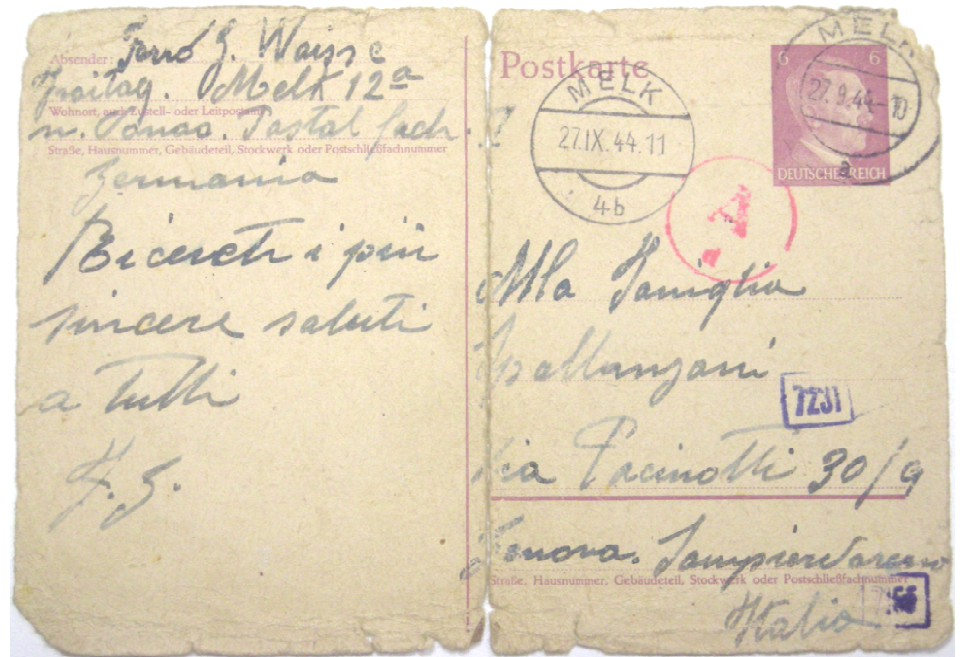 Absender: Ferro G. Waisse
Freitag. Melk 12a
Wohnort, auch Zustell- oder Leitpostamt
n. Donao. Postal fach. I
Straße, Hausnummer, Gebäudeteil, Stockwerk oder Postschließfachnummer
Germania
i più
sincere saluti
a tutti
F. G.
Postkarte
6 6
DEUTSCHES REICH
MELK
27.9.44-10
a
MELK
27.IX.44.11
4b
A
Alla Famiglia
Spallanzani
7231
Via Pacinotti 30/9
Genova. Sampierdareno
Straße, Hausnummer, Gebäudeteil, Stockwerk oder Postschließfachnummer
Italia